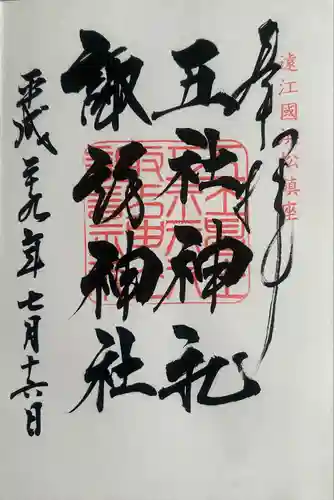 遠江國浜松鎮座
奉拝
五社神社
諏訪神社
平成二十九年七月十六日